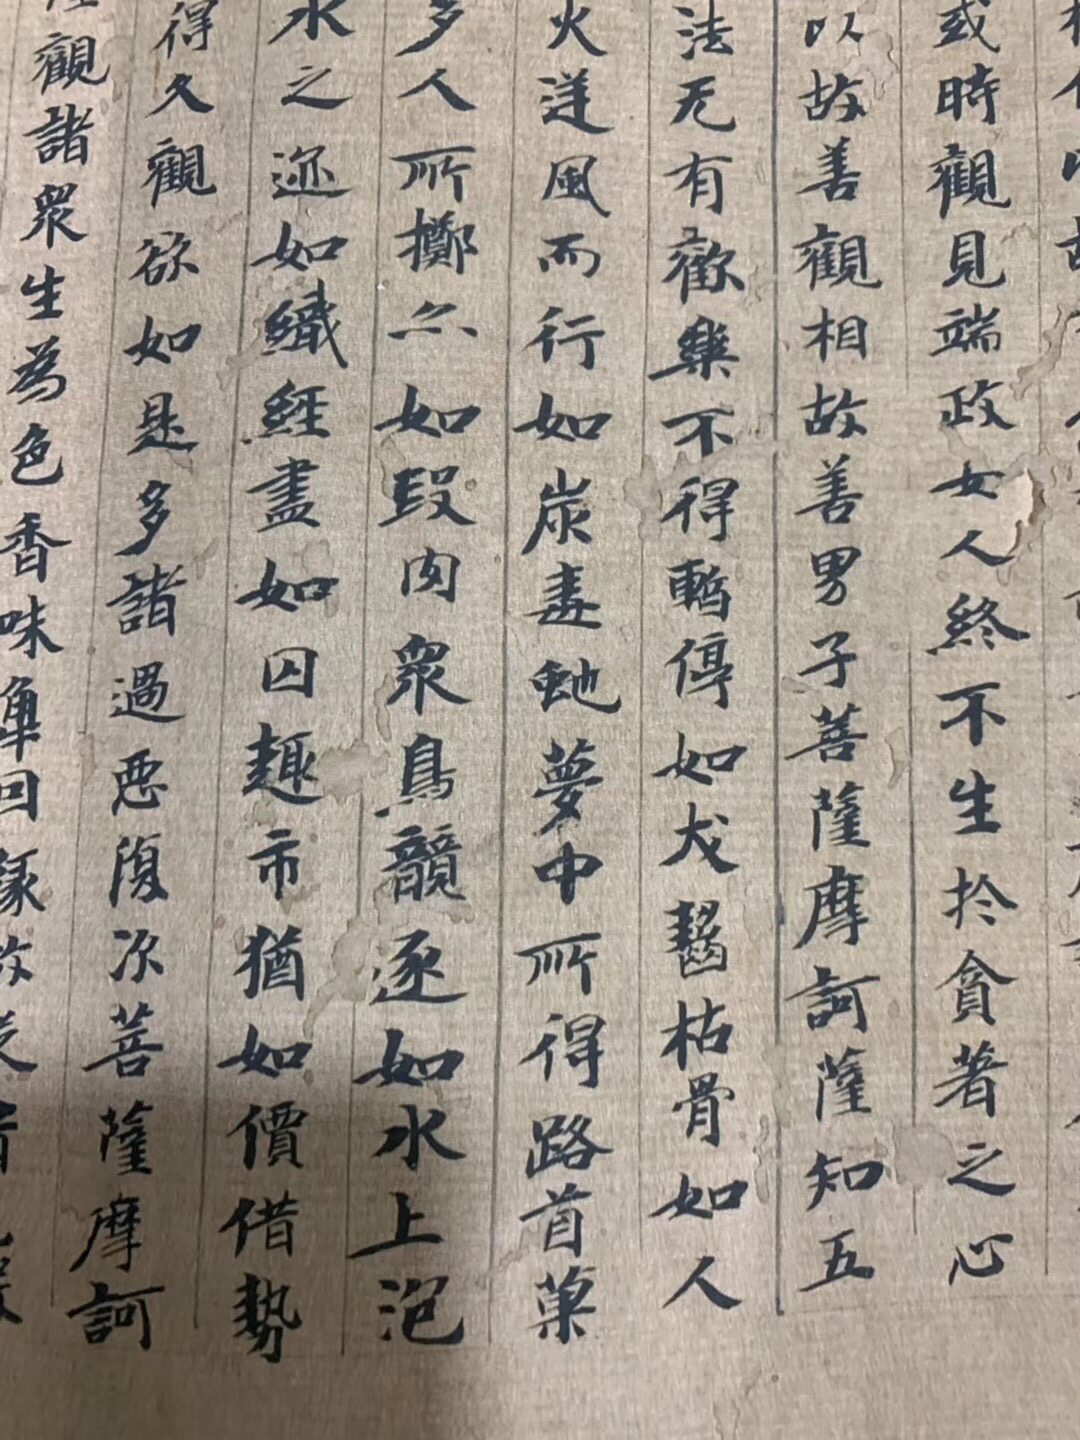 或時觀見端政女人終不生扵貪著之心
以故善觀相故善男子菩薩摩訶薩知五
法无有歡樂不得暫停如犬齧枯骨如人
火逆風而行如炭毒虵夢中所得路首菓
多人所擲亦如段肉衆鳥競逐如水上泡
水之迹如織經盡如囚趣市猶如價借勢
得久觀欲如是多諸過惡復次菩薩摩訶
觀諸衆生為色香味